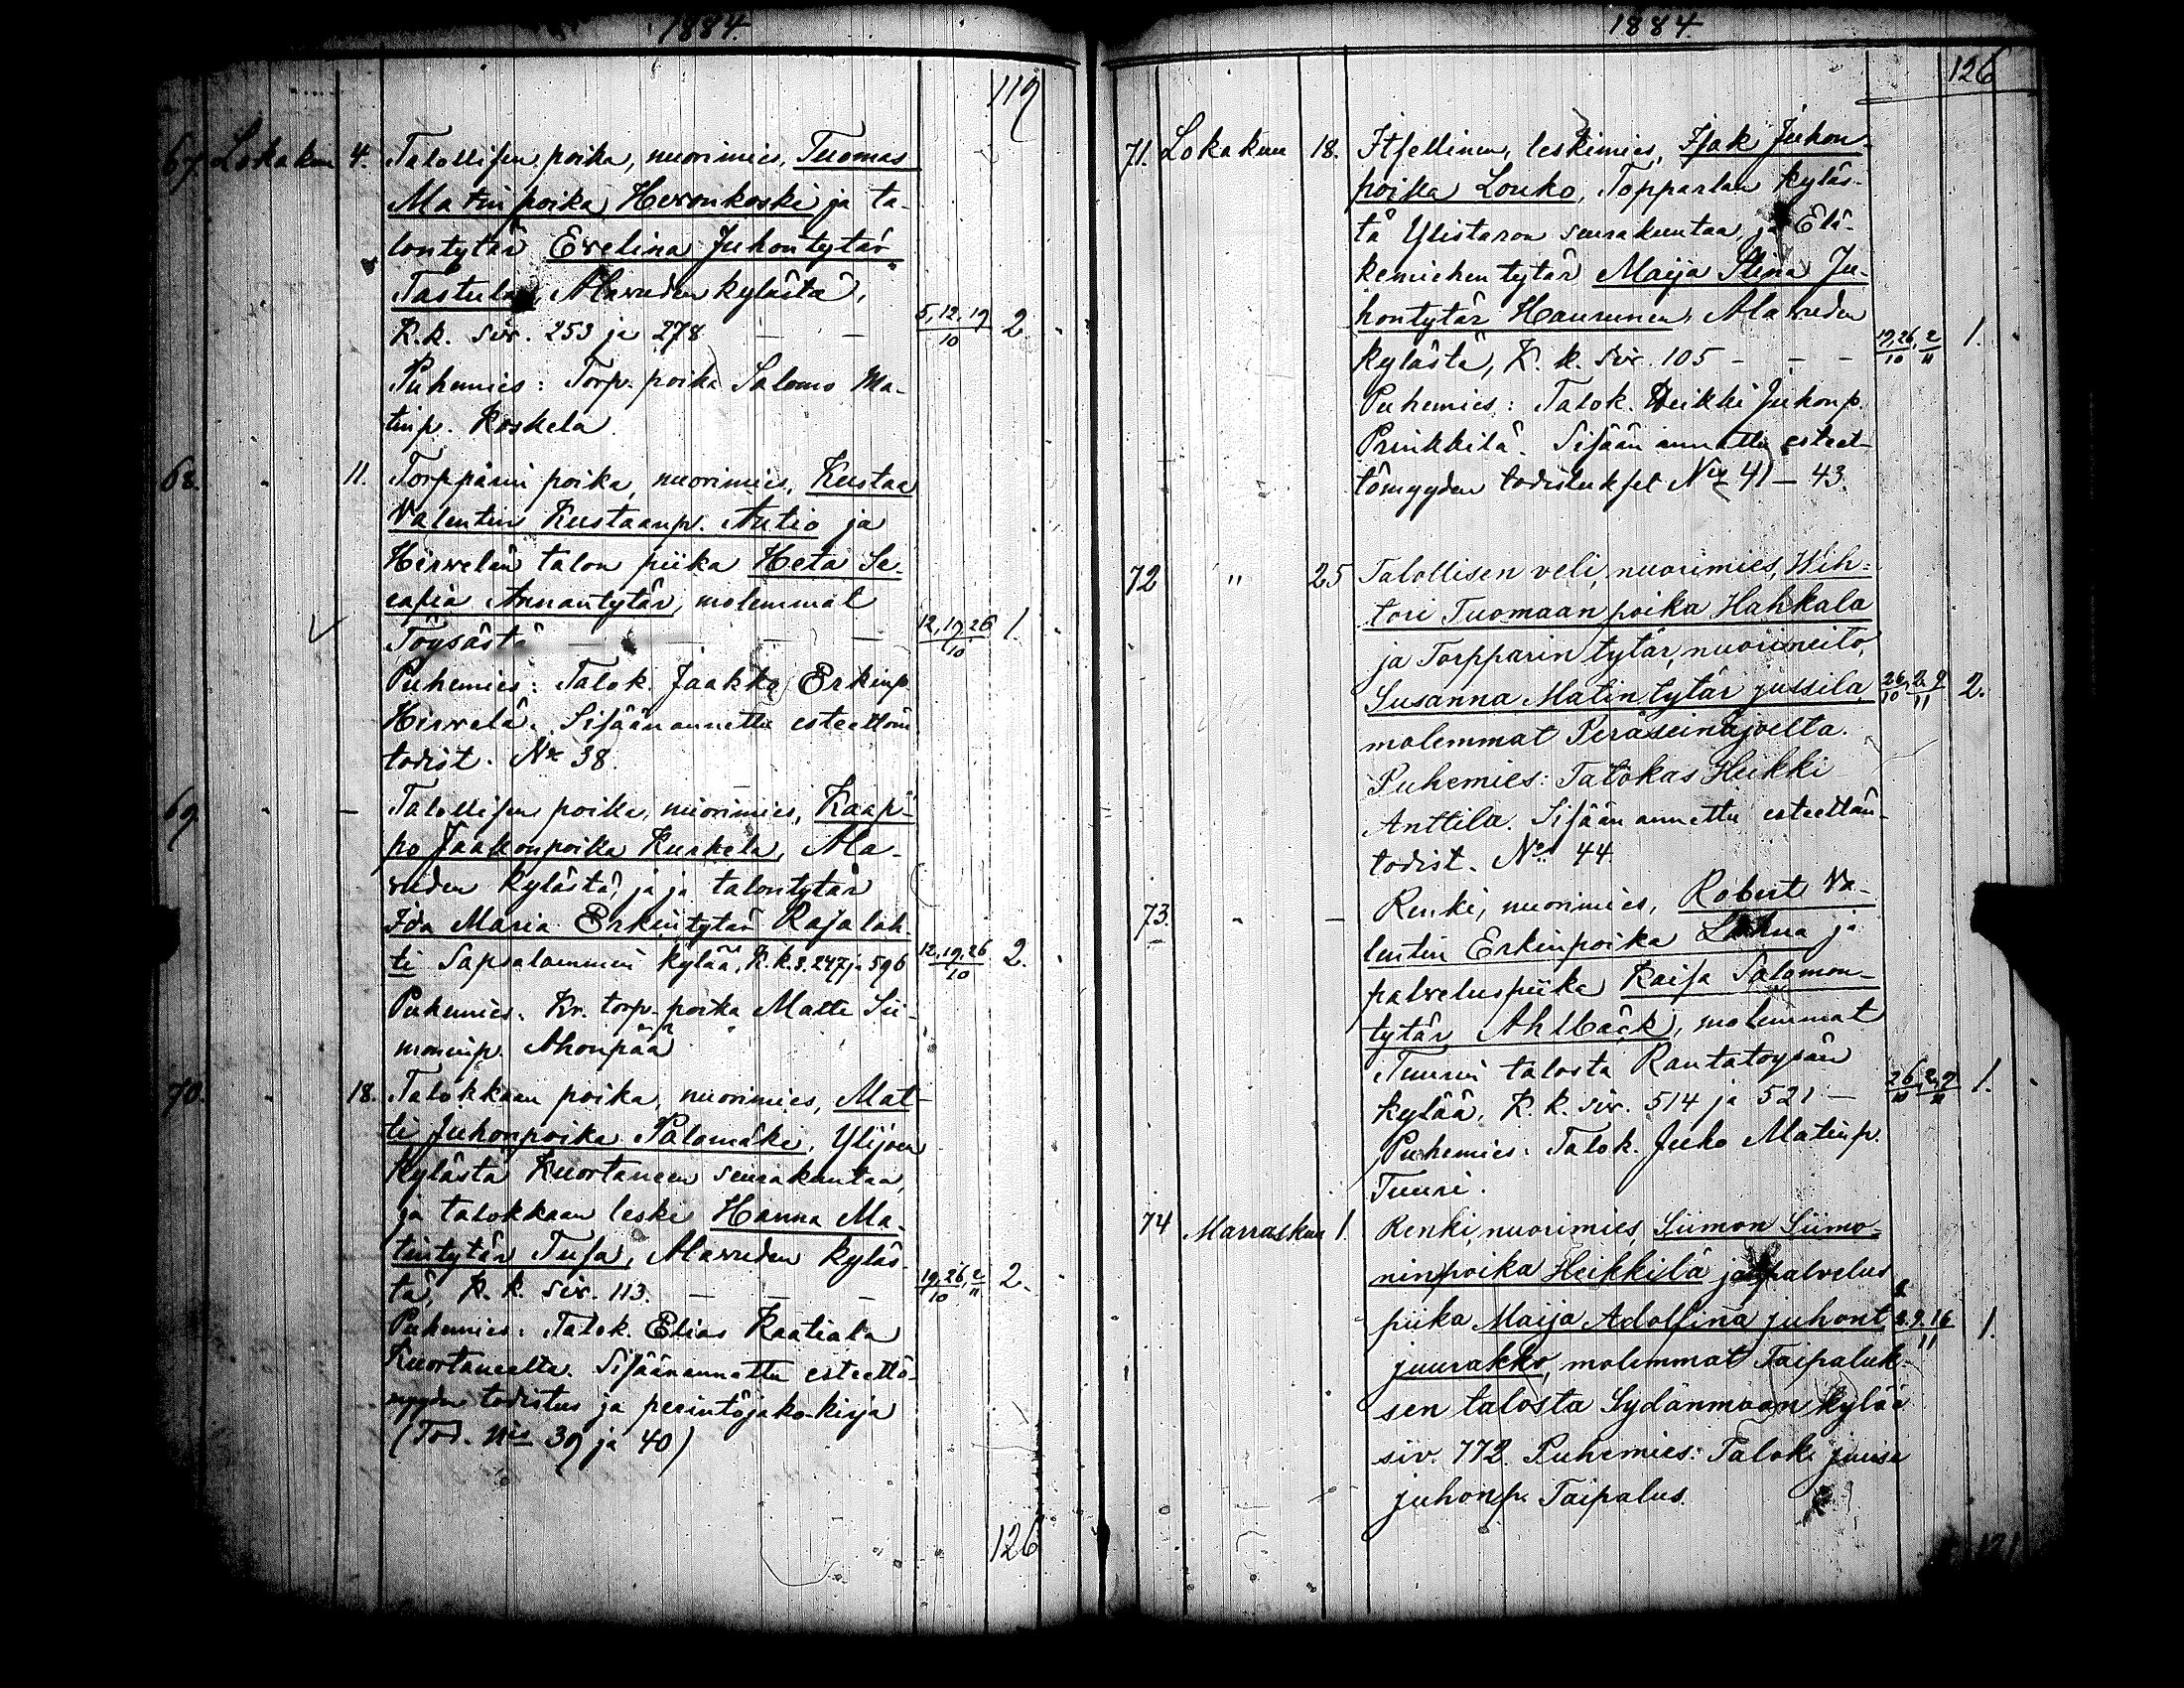 1884.
119
67. Lokakuu 4. Talollisen poika, nuorimies, Tuomas
Matinpoika Heronkoski ja ta-
lontytär Evelina Juhontytär
Tastula, Alavuden kylästä,
K.k. siv. 253 ja 278 — — 5,12,19/10 2.
Puhemies: Torp. poika Salomo Ma-
tinp. Koskela.
68. " 11. Torpparin poika, nuorimies, Kustaa
Valentin Kustaanp. Autio ja
Hirvelän talon piika Heta Se-
rafia Annantytär, molemmat
Töysästä — — — 12,19,26/10 1.
Puhemies: Talok. Jaakko Erkinp.
Hirvelä. Sisäänannettu esteettöm.
todist. No 38.
69. " — Talollisen poika, nuorimies, Kaap-
po Jaakonpoika Kurkela, Ala-
vuden kylästä, ja ja talontytär
Ida Maria Erkintytär Rajalah-
ti Sapsalammin kylää, K.k.s. 247 ja 596 12,19,26/10 2.
Puhemies. Kr. torp. poika Matti Sii-
moninp. Ahonpää
70. " 18. Talokkaan poika, nuorimies, Mat-
ti Juhonpoika Palomäki, Ylijoen
kylästä Kuortaneen seurakuntaa,
ja talokkaan leski Hanna Ma-
tintytär Tusa, Alavuden kyläs-
tä, K.k. siv. 113. — — — 19,26/10, 2/11 2.
Puhemies: Talok. Elias Kaatiala
Kuortaneelta. Sisäänannettu esteettö-
myyden todistus ja perintöjako-kirja
(Tod. Nis 39 ja 40)
126
1884
126
71. Lokakuu 18. Itsellinen, leskimies, Isak Juhon-
poika Louko, Topparlan kyläs-
tä Ylistaron seurakuntaa, ja Elä-
kemiehen tytär Maija Stina Ju-
hontytär Haurunen, Alavuden
kylästä, K.k. siv. 105 — — — 19,26/10, 2/11 1.
Puhemies: Talok. Heikki Juhonp.
Prinkkilä. Sisäänannettu esteet-
tömyyden todistukset Nis 41–43.
72 " 25 Talollisen veli, nuorimies, Wih-
tori Tuomaanpoika Hahkala
ja Torpparin tytär, nuorineito,
Susanna Matintytär jussila, 26/10, 2,9/11 2.
molemmat Peräseinäjoelta.
Puhemies: Talokas Heikki
Anttila. Sisäänannettu esteettöm.
todist. No 44.
73. " — Renki, nuorimies, Robert Va-
lentin Erkinpoika ja
palveluspiika Kaisa Salomon-
tytär Ahlbäck, molemmat
Tuurin talosta Rantatöysän
kylää, K.k. siv. 514 ja 521 — 26/10, 2,9/11 1.
Puhemies: Talok. Juho Matinp.
Tuuri.
74 Marraskuu 1. Renki, nuorimies, Siimon Siimo-
ninpoika Heikkilä ja palvelus
piika Maija Adolfina juhont. 2,9,16/11 1.
juurakko, molemmat Taipaluk-
sen talosta Sydänmaan kylää
siv. 772. Puhemies: Talok. juise
juhonp. Taipalus.